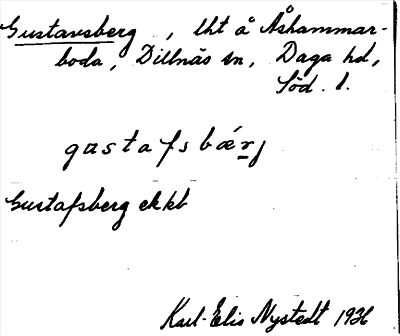 Gustavsberg, lht å Åshammar-
boda, Dillnäs sn, Daga hd,
Söd. l.
gustafsbǽrj
Gustafsberg ekkt
Karl-Elis Nystedt 1936